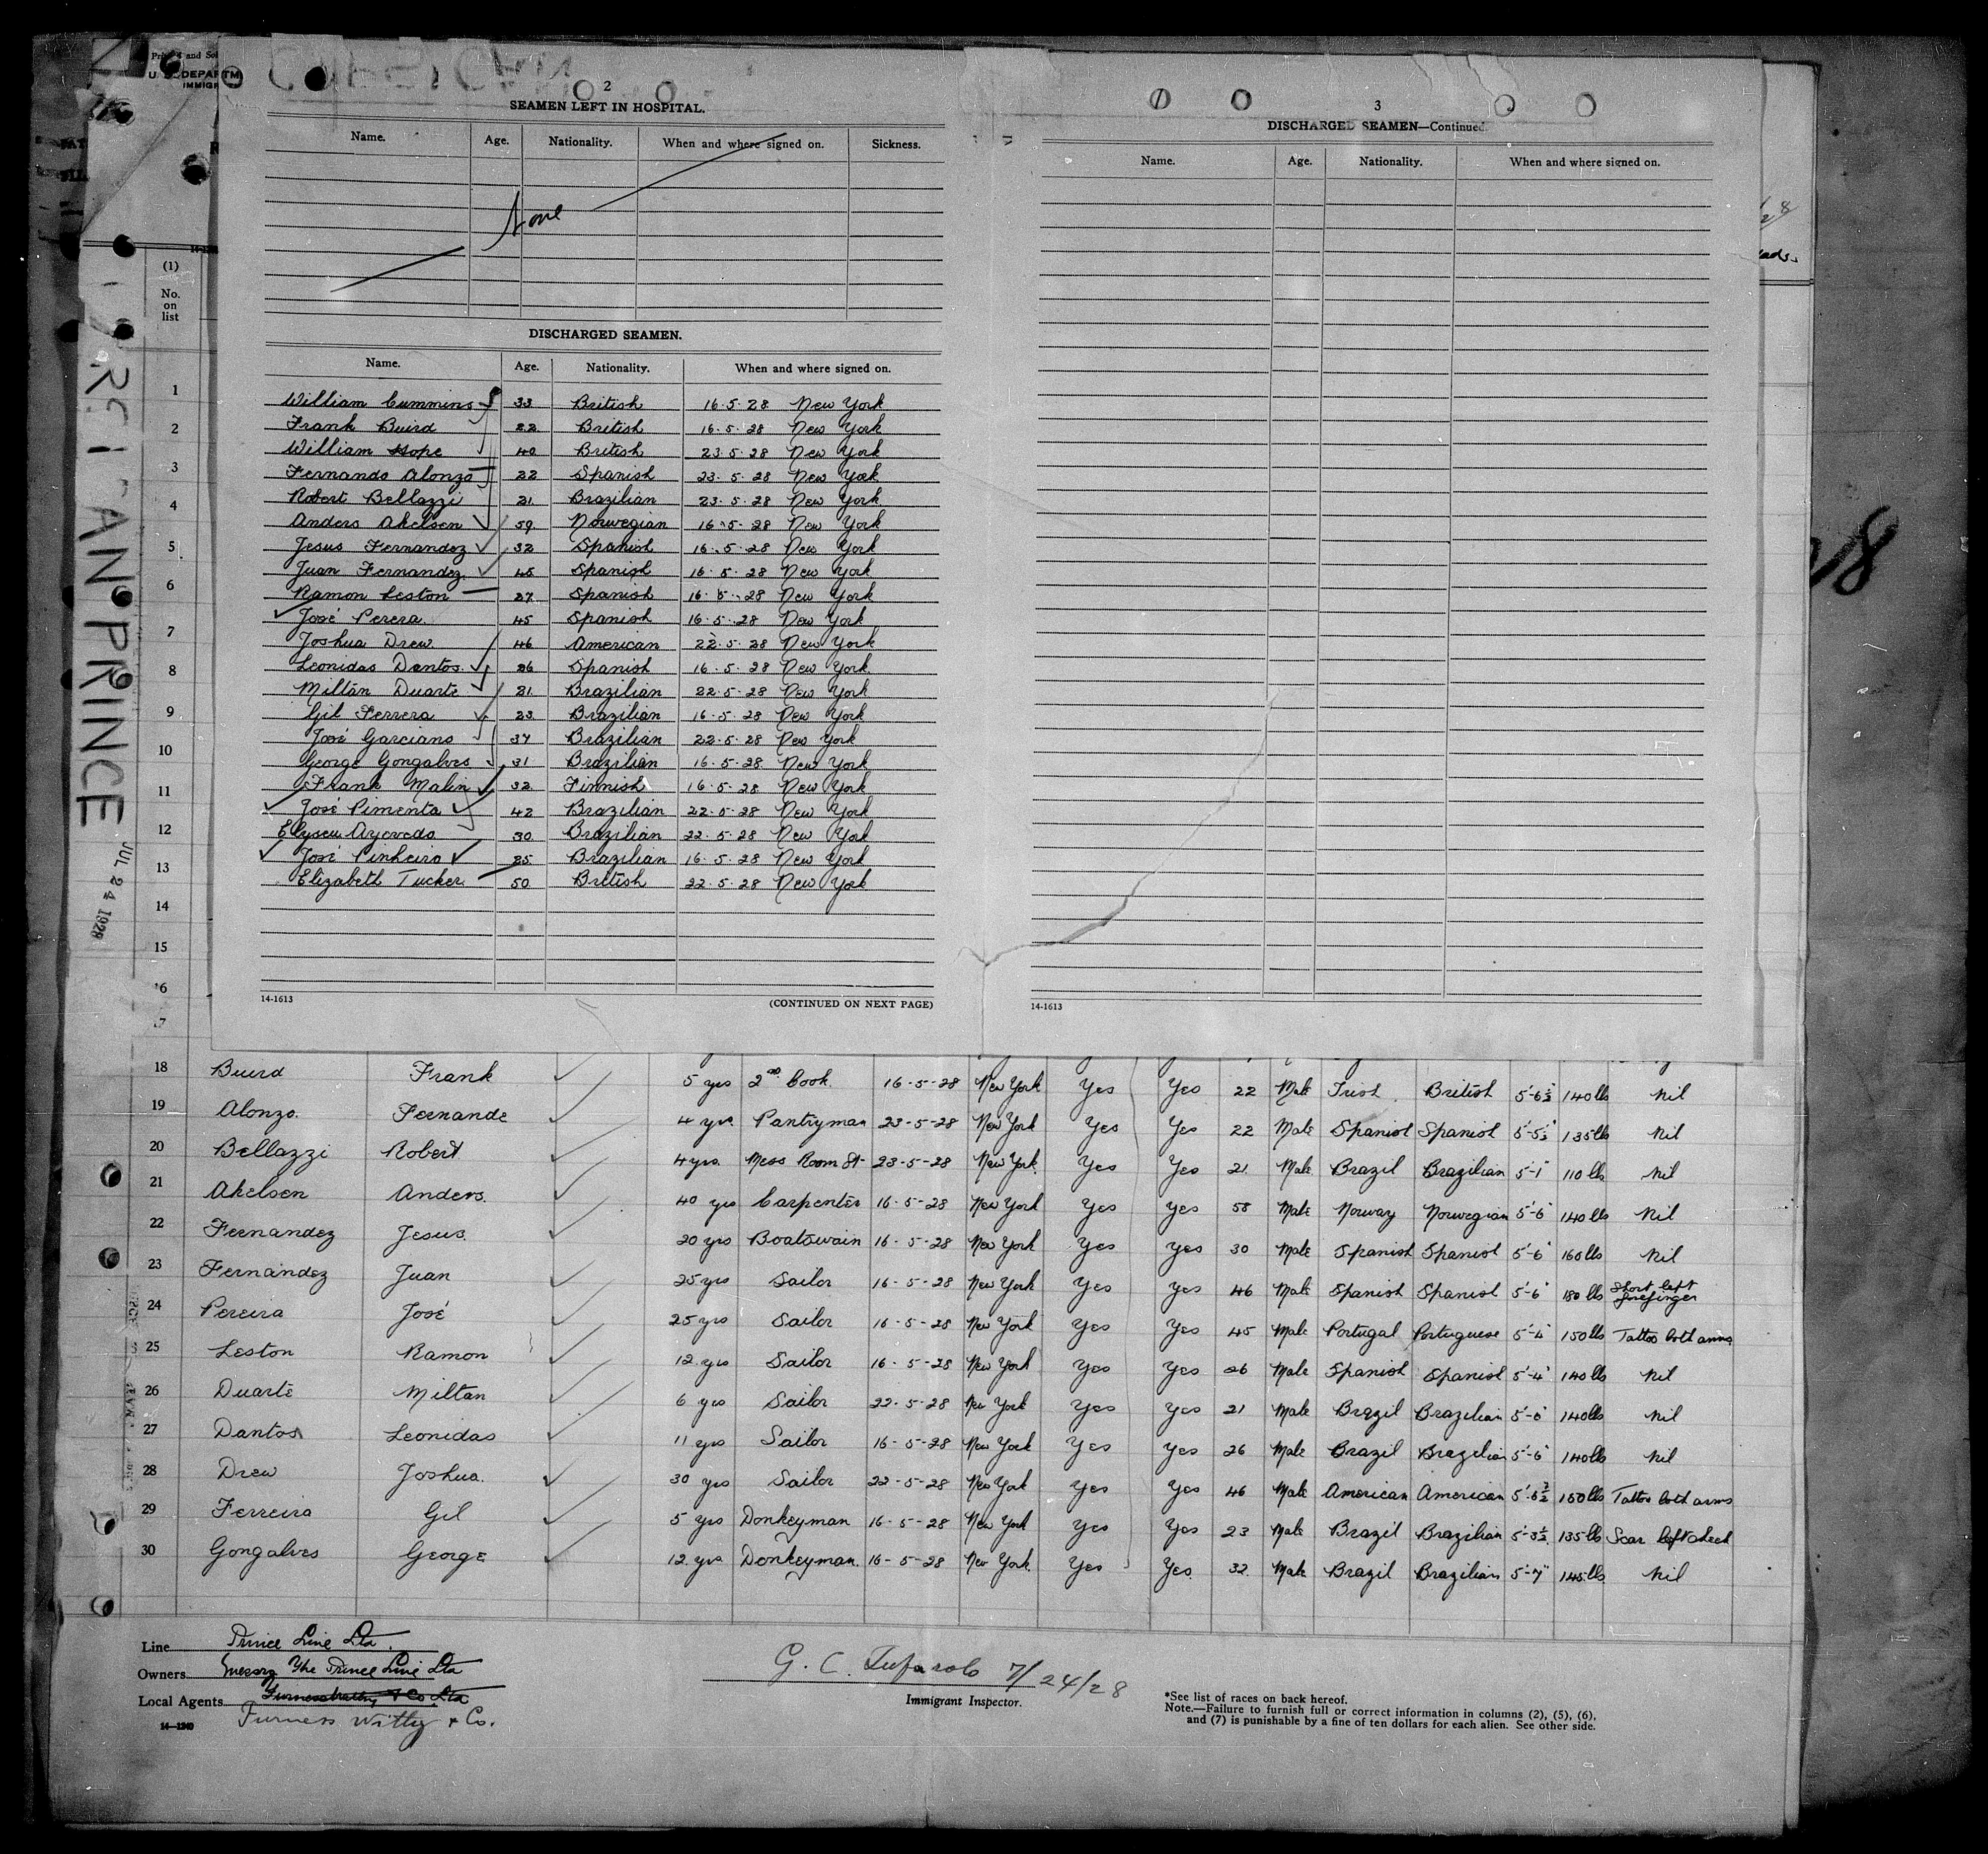 2
SEAMEN LEFT IN HOSPITAL.
Name. Age. Nationality. When and where signed on. Sickness.
None
DISCHARGED SEAMEN.
Name. Age. Nationality. When and where signed on.
William Cummins 33 British 16-5-28 New York
Frank Buird 22 British 16-5-28 New York
William Hope 40 British 23-5-28 New York
Fernando Alonzo 22 Spanish 23-5-28 New York
Robert Bellazzi 21 Brazilian 23-5-28 New York
Anders Akelsen 59 Norwegian 16-5-28 New York
Jesus Fernandez 32 Spanish 16-5-28 New York
Juan Fernandez 45 Spanish 16-5-28 New York
Ramon Leston 27 Spanish 16-5-28 New York
José Perera 45 Spanish 16-5-28 New York
Joshua Drew 46 American 22-5-28 New York
Leonidas Dantos 26 Spanish 16-5-28 New York
Miltan Duarte 21 Brazilian 22-5-28 New York
Gil Ferrera 23 Brazilian 16-5-28 New York
José Garciano 37 Brazilian 22-5-28 New York
George Gongalves 31 Brazilian 16-5-28 New York
Frank Malin 32 Finnish 16-5-28 New York
José Pimenta 42 Brazilian 22-5-28 New York
Elyseu Azevedo 30 Brazilian 22-5-28 New York
José Pinheiro 25 Brazilian 16-5-28 New York
Elizabeth Tucker 50 British 22-5-28 New York
14-1613 (CONTINUED ON NEXT PAGE)
3
DISCHARGED SEAMEN—Continued.
Name. Age. Nationality. When and where signed on.
14-1613
U. S. DEPARTM
IMMIGR
(1)
No.
on
list
1
2
3
4
5
6
7
8
9
10
11
12
13
14
15
16
17
AN PRINCE
JUL 24 1928
18 Buird Frank 5 yrs 2nd Cook 16-5-28 New York Yes Yes 22 Male Irish British 5'-6½ 140 lbs Nil
19 Alonzo Fernande 4 yrs Pantryman 23-5-28 New York Yes Yes 22 Male Spanish Spanish 5'-5½ 135 lbs Nil
20 Bellazzi Robert 4 yrs Mess Room St- 23-5-28 New York Yes Yes 21 Male Brazil Brazilian 5'-1" 110 lbs Nil
21 Akelsen Anders 40 yrs Carpenter 16-5-28 New York Yes Yes 58 Male Norway Norwegian 5'-6" 140 lbs Nil
22 Fernandez Jesus 20 yrs Boatswain 16-5-28 New York Yes Yes 30 Male Spanish Spanish 5'-6" 160 lbs Nil
23 Fernandez Juan 25 yrs Sailor 16-5-28 New York Yes Yes 46 Male Spanish Spanish 5'-6" 180 lbs Short left forefinger
24 Pereira José 25 yrs Sailor 16-5-28 New York Yes Yes 45 Male Portugal Portuguese 5'-4" 150 lbs Tattoo both arms
25 Leston Ramon 12 yrs Sailor 16-5-28 New York Yes Yes 26 Male Spanish Spanish 5'-4" 140 lbs Nil
26 Duarte Miltan 6 yrs Sailor 22-5-28 New York Yes Yes 21 Male Brazil Brazilian 140 lbs Nil
27 Dantos Leonidas 11 yrs Sailor 16-5-28 New York Yes Yes 26 Male Brazil Brazilian 5'-6" 140 lbs Nil
28 Drew Joshua 30 yrs Sailor 22-5-28 New York Yes Yes 46 Male American American 150 lbs Tattoo both arms
29 Ferreira Gil 5 yrs Donkeyman 16-5-28 New York Yes Yes 23 Male Brazil Brazilian 5'-3½ 135 lbs Scar left cheek
30 Gongalves George 12 yrs Donkeyman 16-5-28 New York Yes Yes 32 Male Brazil Brazilian 5'-7" 145 lbs Nil
Line Prince Line Ltd.
Owners Messrs The Prince Line Ltd
Local Agents
Furness Withy & Co.
14—1240
7/24/28
Immigrant Inspector.
*See list of races on back hereof.
Note.—Failure to furnish full or correct information in columns (2), (5), (6),
and (7) is punishable by a fine of ten dollars for each alien. See other side.